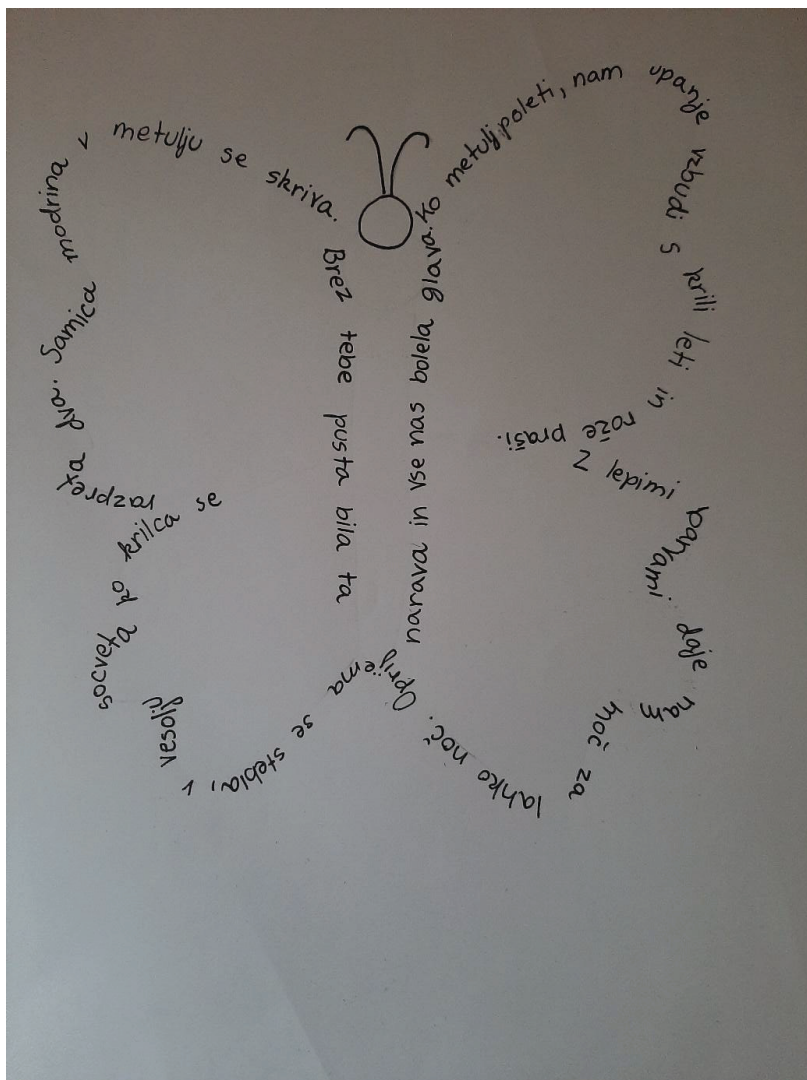 Ko metulj poleti, nam upanje vzbudi s krili leti in rože praši.
Z lepimi barvami daje nam moč za lahko noč.
Oprijema se stebla, v vesolju socveta ko krilca se razpreta dva.
Samica modrina v metulju se skriva.
Brez tebe pusta bila ta
narava in vse nas bolela glava.